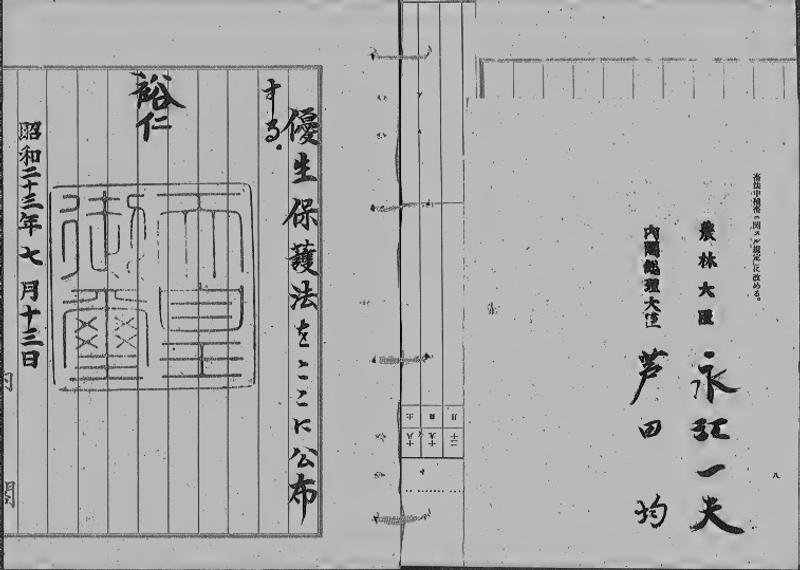 憲法中補審ニ関スル規定」に改める。
農林大臣 永江一夫
内閣総理大臣 芦田均
八
二十 月
十九 日
十八 土
優生保護法をここに公布
する。
裕仁
天皇
御璽
昭和二十三年七月十三日
内
閣